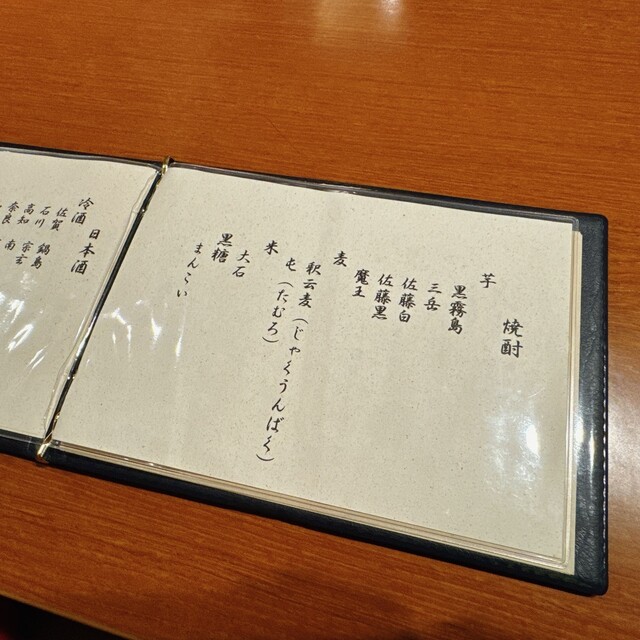 焼酎
芋
黒霧島
三岳
佐藤白
佐藤黒
魔王
麦
釈云麦(じゃくうんばく)
屯(たむろ)
米
大石
黒糖
まんこい
冷酒 日本酒
佐賀 鍋島
石川 宗玄
高知 南
奈良